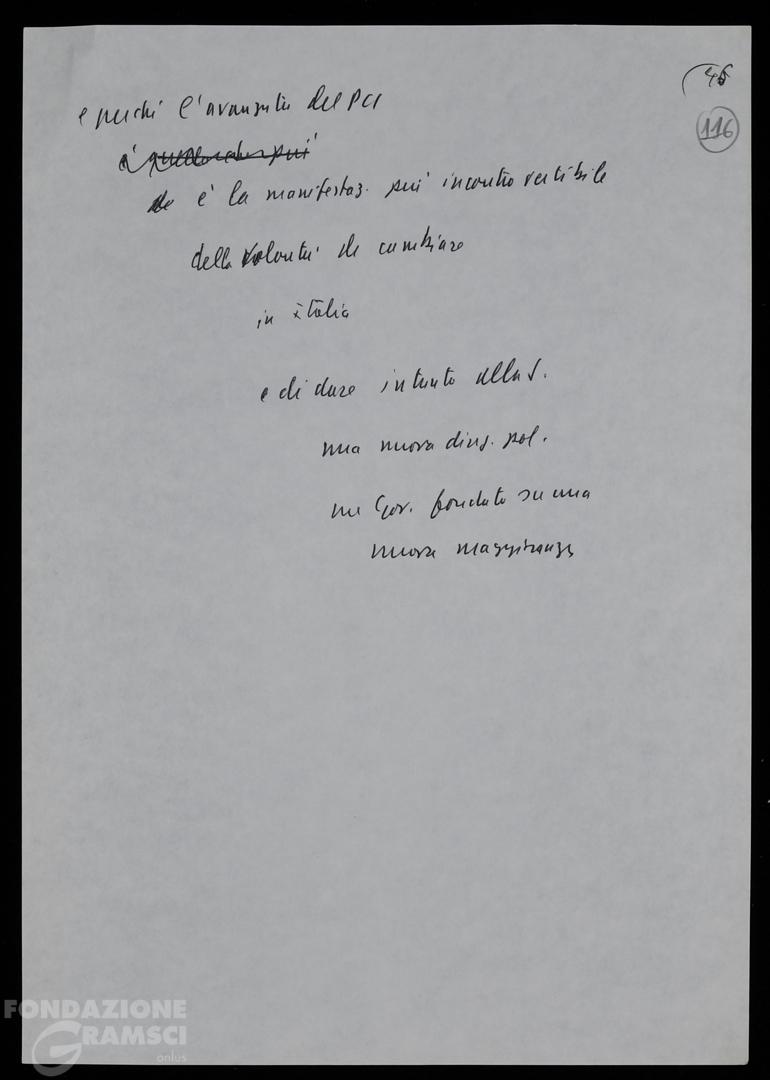 45
116
e perché l'avanzata del PCI
è quello che più
è la manifestaz. più incontrovertibile
della volontà di cambiare
in italia
e di dare intanto alla S.
una nuova direz. pol.
un Gov. fondato su una
nuova maggioranza
FONDAZIONE
GRAMSCI
onlus